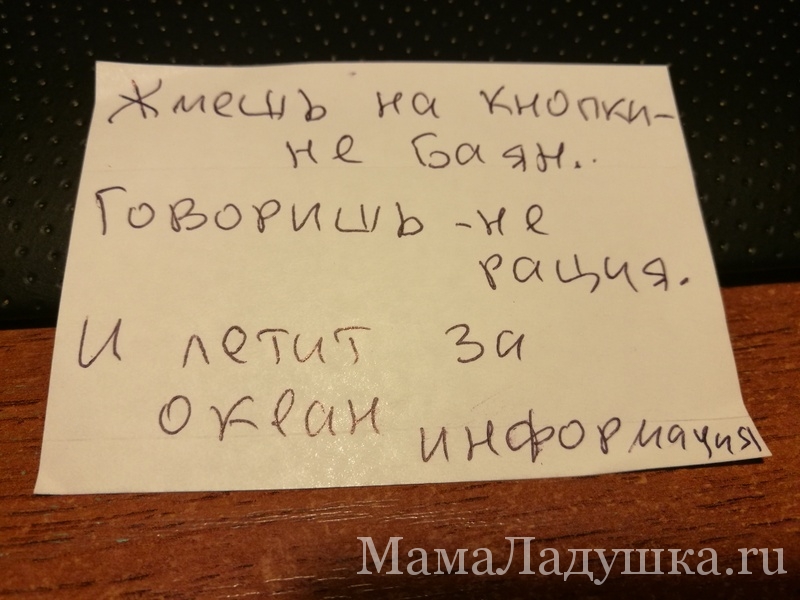 Жмешь на кнопки-
не баян..
Говоришь -не
рация.
И летит за
океан информация
МамаЛадушка.ru